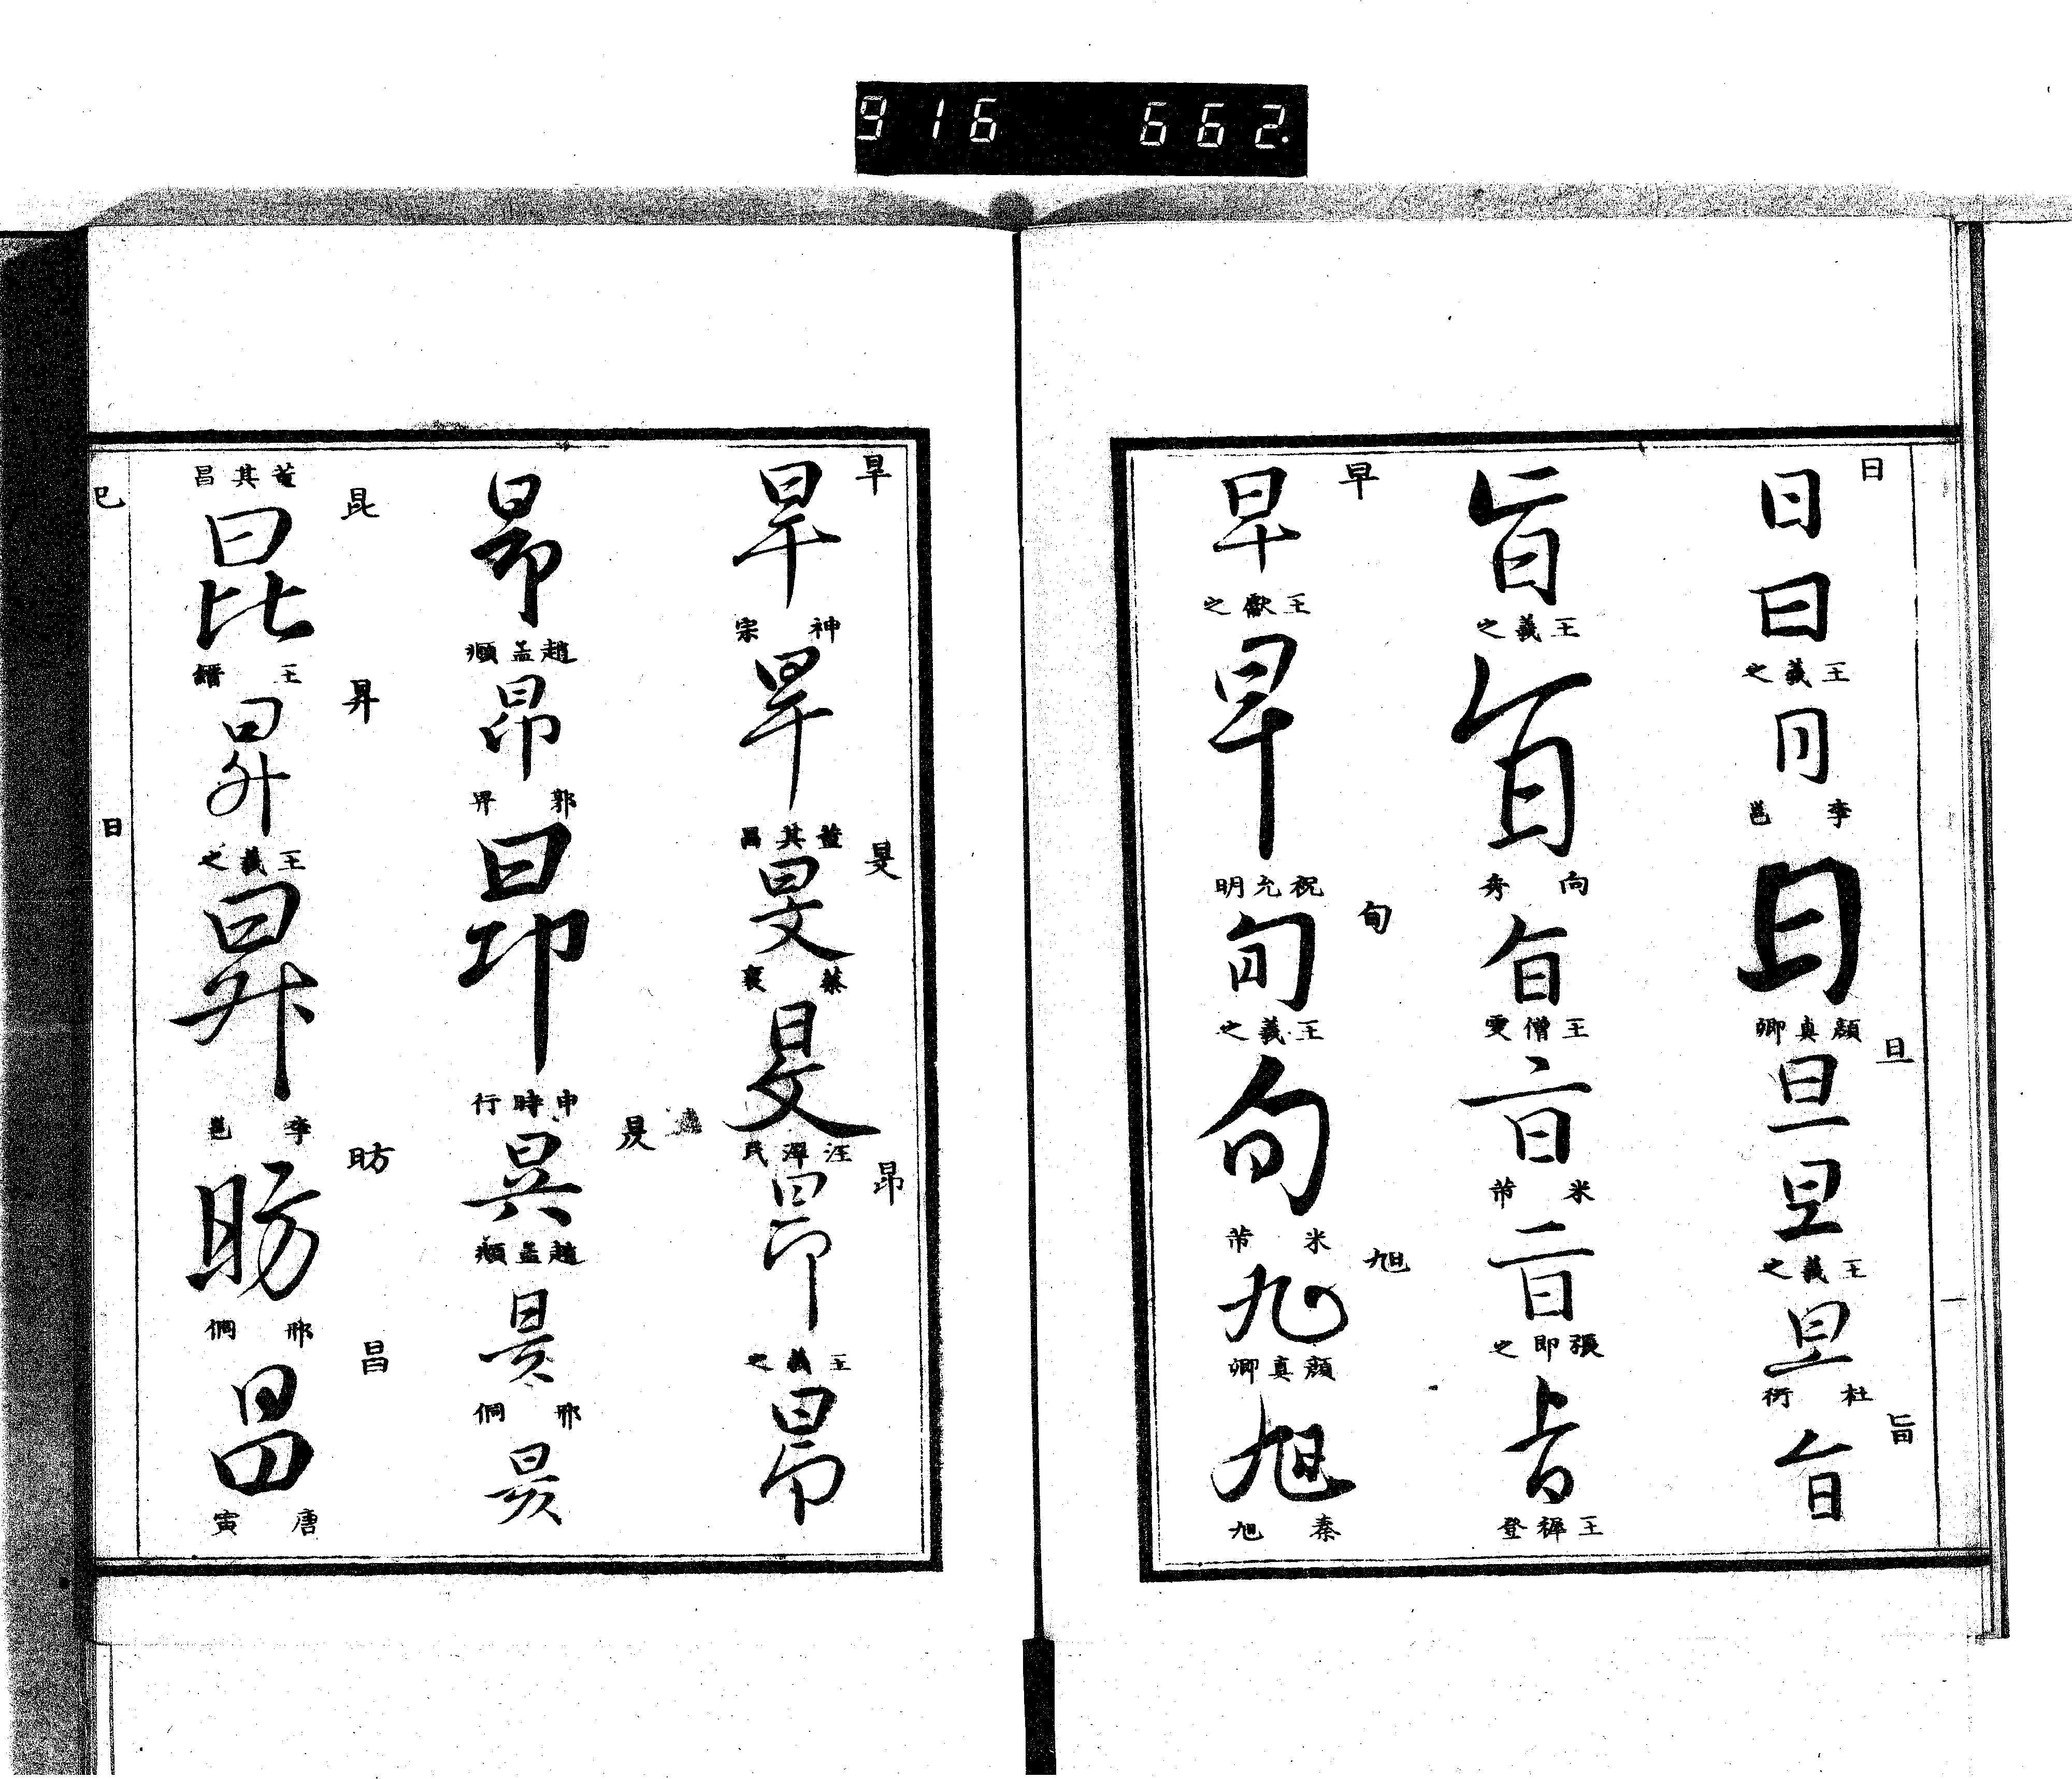 916 662.
日
日 日
王羲之
日
李邕
日
顏真卿
旦
旦 旦
王羲之
旦
杜衍
旨
旨
旨
王羲之
旨
向秀
旨
王僧虔
旨
米芾
旨
張即之
旨
王穉登
早
早
王獻之
早
祝允明
旬
旬
王羲之
旬
米芾
旭
旭
顏真卿
旭
秦旭
旱
旱
神宗
旱
董其昌
旻
旻
蔡襄
旻
汪澤民
昂
昂
王羲之
昂
昂
趙孟頫
昂
郭畀
昂
申時行
昃
昃
趙孟頫
昃
邢侗
昃
董其昌
昆
昆
王縉
昇
昇
王羲之
昇
李邕
昉
昉
邢侗
昌
昌
唐寅
巳
日
一